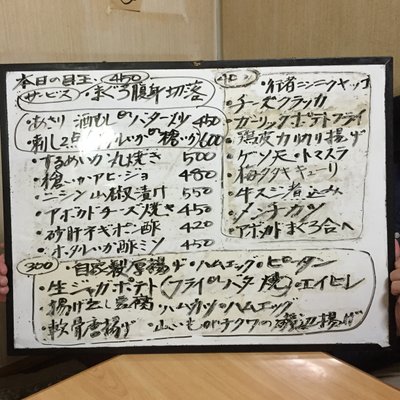 本日の目玉 450
サービス ・まぐろ腹身切落
・あさり 酒むし or バター 450
・刺し2点 ホタルいか or 槍いか 600
・するめいか丸焼き 500
・槍いかアヒージョ 480
・ニシン山椒漬け 550
・アボカドチーズ焼き 450
・砂肝ネギポン酢 420
・ホタルいか酢ミソ 450
・行者ニンニクヤッコ
・チーズクラッカー
・ガーリックポテトフライ
・鶏皮カリカリ揚げ
・ゲソ天・トマスラ
・梅タタキキューリ
・牛スジ煮込み
・メンチカツ
・アボカドまぐろ合へ
300 ・自家製厚揚げ・ハムエッグ・ピータン
・生ジャガポテト(フライ or バター焼)・エイヒレ
・揚げ出し豆腐 ・ハムカツ・ハムエッグ
・軟骨唐揚げ ・山いも or チクワの磯辺揚げ